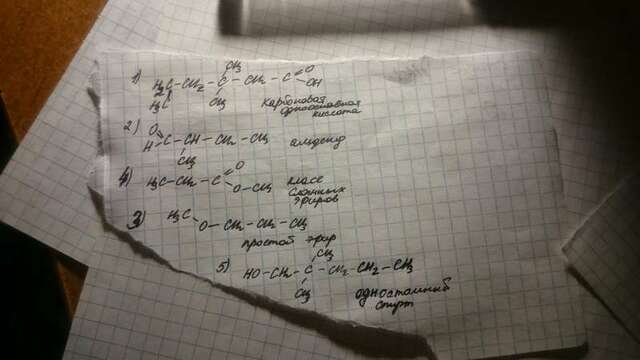 CH₃
1) H₂C-CH₂-C-CH₂-C=O
OH
H₃C CH₃ карбоновая
одноосновная
кислота
2) O
H C-CH-CH₂-CH₃ альдегид
CH₃
4) H₃C-CH₂-C=O
O-CH₃ класс
сложных
эфиров
3) H₃C
O-CH₂-CH₂-CH₃
простой эфир
CH₃
5) HO-CH₂-C-CH₂-CH₂-CH₃
CH₃ одноатомный
спирт